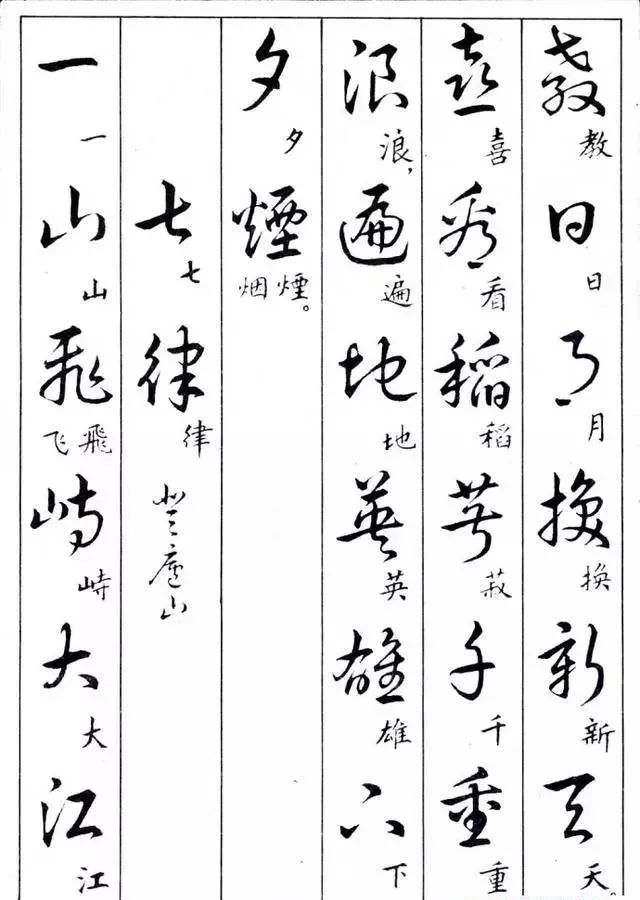 教日月换新天
教日月换新天。
喜看稻菽千重
喜看稻菽千重
浪遍地英雄下
浪,遍地英雄下
夕煙
夕煙。烟
七律 登廬山
七律
一山飛峙大江
一山飛飞峙大江